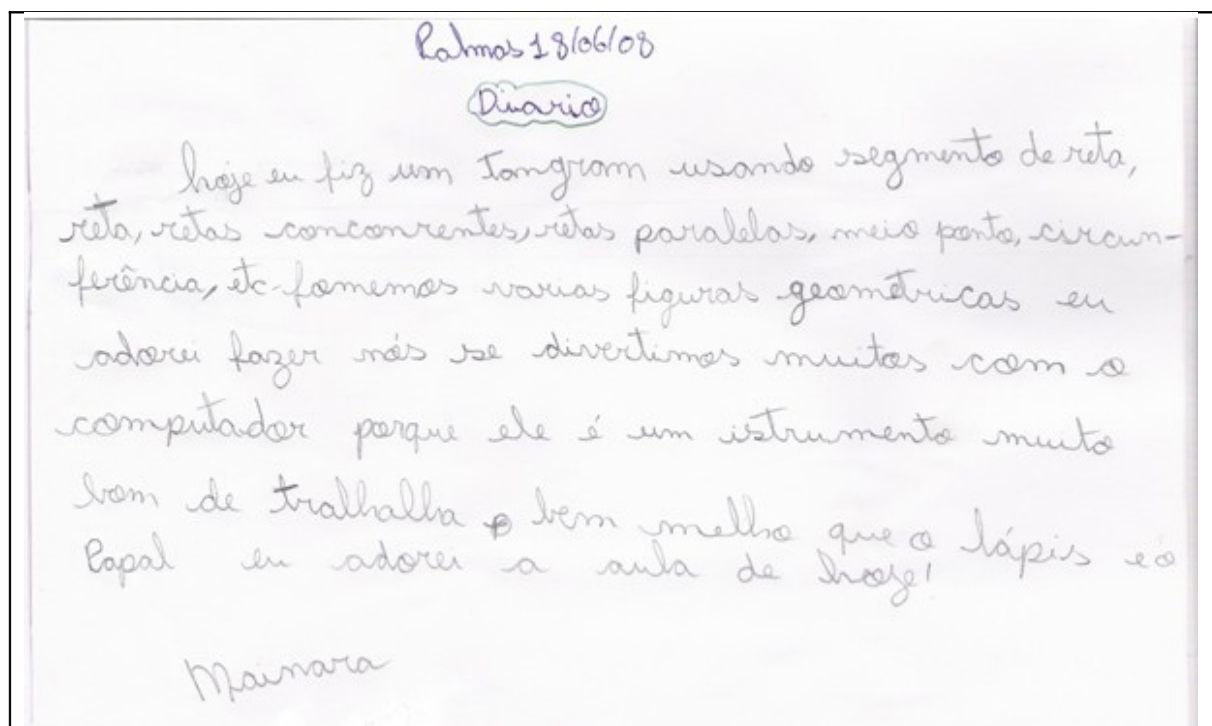 Palmas 18/06/08
Diuario
hoje eu fiz um Tangram usando segmento de reta,
reta, retas conconrentes, retas paralelas, meio ponto, circun-
ferência, etc. fomemos varias figuras geométricas eu
adorei fazer nós se divertimos muitos com o
computador porque ele é um istrumento muito
bom de tralhalha e bem melho que o lápis e o
Papal eu adorei a aula de hoje!
Mainara